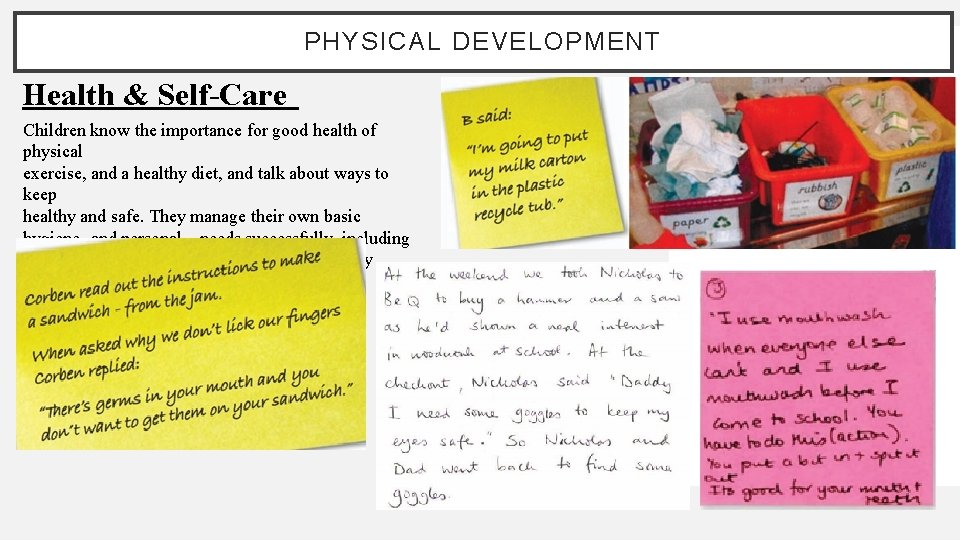 PHYSICAL DEVELOPMENT
Health & Self-Care
Children know the importance for good health of
physical
exercise, and a healthy diet, and talk about ways to
keep
healthy and safe. They manage their own basic
hygiene and personal needs successfully, including
y
B said:
"I'm going to put
my milk carton
in the plastic
recycle tub."
paper
rubbish
plastic
Corben read out the instructions to make
a sandwich - from the jam.
When asked why we don't lick our fingers
Corben replied:
"There's germs in your mouth and you
don't want to get them on your sandwich."
At the weekend we took Nicholas to
B&Q to buy a hammer and a saw
as he'd shown a real interest
in woodwork at school. At the
checkout, Nicholas said "Daddy
I need some goggles to keep my
eyes safe." So Nicholas and
Dad went back to find some
goggles.
3
"I use mouthwash
when everyone else
can't and I use
mouthwash before I
come to school. You
have to do this (action).
You put a bit in + spit it
out
Its good for your mouth +
teeth